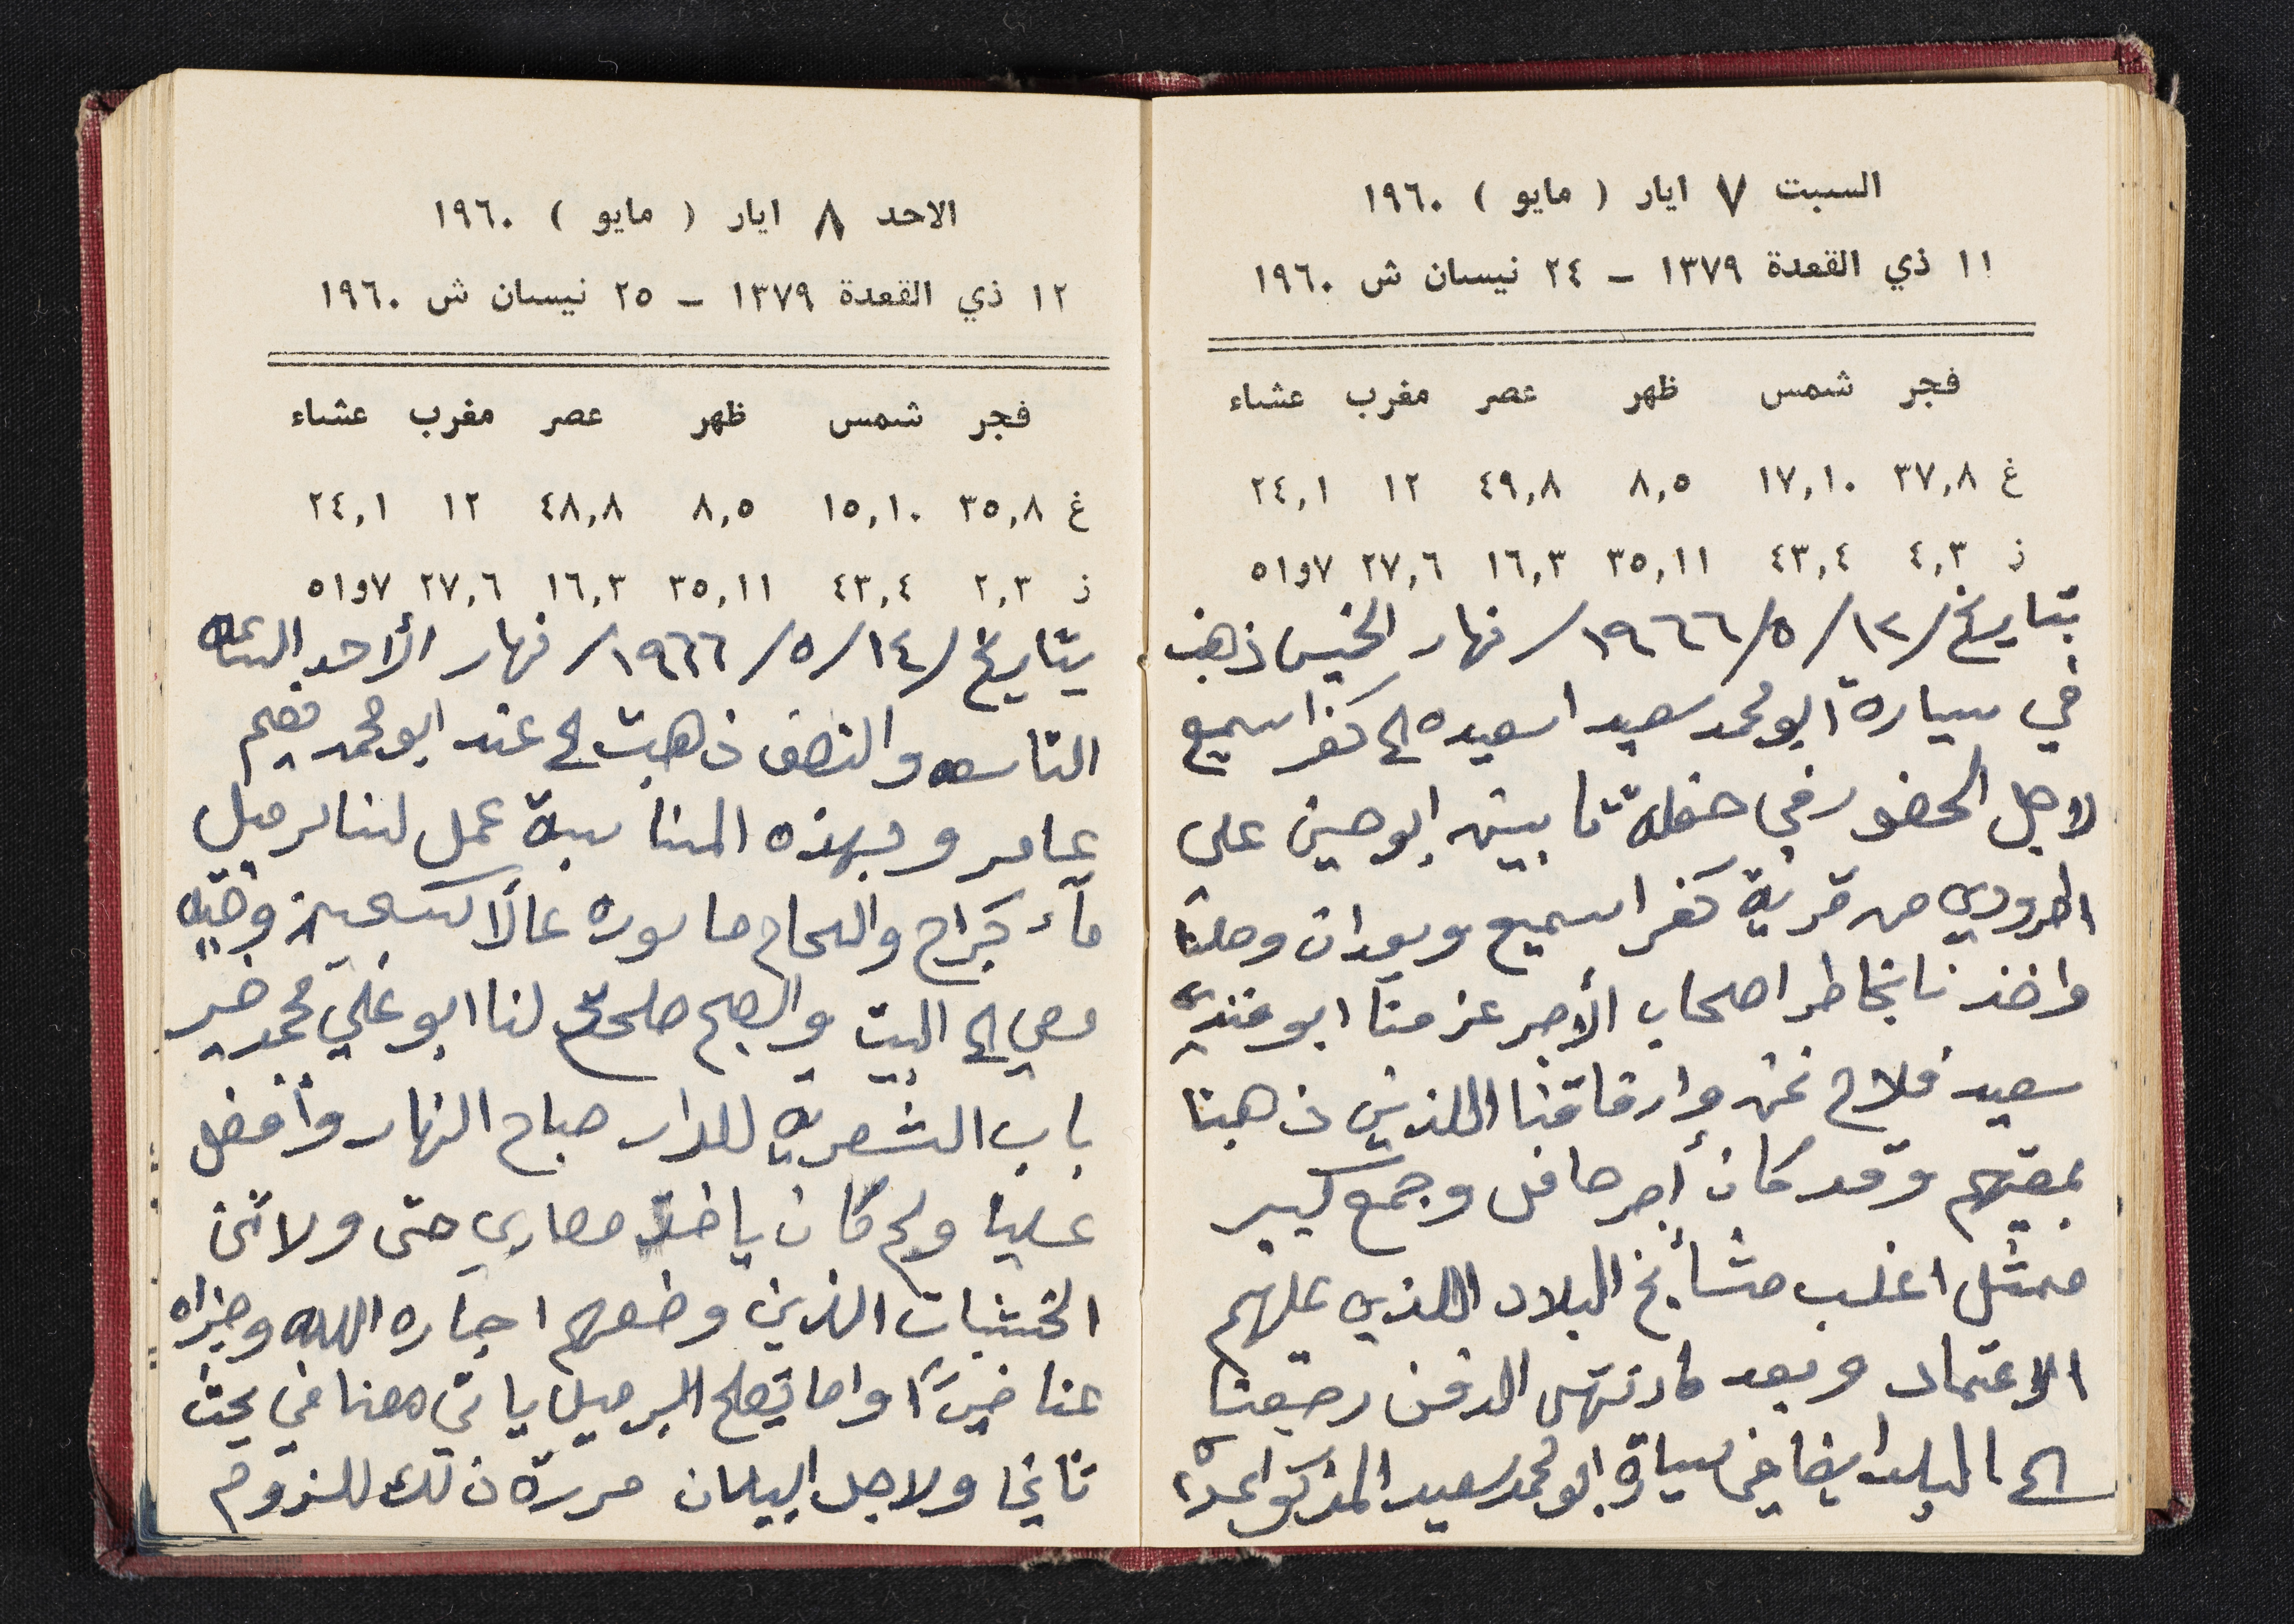 السبت ٧ ايار ( مايو ) ١٩٦٠
١١ ذي القعدة ١٣٧٩ – ٢٤ نيسان ش ١٩٦٠
فجر شمس ظهر عصر مغرب عشاء
غ ٣٧,٨ ١٧,١٠ ٨,٥ ٤٩,٨ ١٢ ٢٤,١
ز ٤,٣ ٤٣,٤ ٣٥,١١ ١٦,٣ ٢٧,٦ ٧و٥١
بتاريخ /١٢/٥/١٩٦٦/ نهار الخميس ذهبت
في سيارة ابو محمد سعيد اسعيده الى كفر اسميع
لاجل الحضور في حفلة تابين ابو حسين على
من قرية كفر اسميع وبعد ان وصلنا
واخذنا بخاطر اصحاب الأجر عزمنا ابو فندي
سعيد فلاح نحن وارفاقنا اللذين ذهبنا
بمعيتهم وقد كان أجر حافل وجمع كبير
ممثل اغلب مشأيخ البلاد اللذي عليهم
الاعتماد وبعد ما انتهى الدفن رجعنا
الى البلد ايضا في سياره ابو محمد سعيد المذكور
الاحد ٨ ايار ( مايو ) ١٩٦٠
١٢ ذي القعدة ١٣٧٩ – ٢٥ نيسان ش ١٩٦٠
فجر شمس ظهر عصر مغرب عشاء
غ ٣٥,٨ ١٥,١٠ ٨,٥ ٤٨,٨ ١٢ ٢٤,١
ز ٢,٣ ٤٣,٤ ٣٥,١١ ١٦,٣ ٢٧,٦ ٧و٥١
بتاريخ /١٤/٥/١٩٦٦/ نهار الأحد الساعه
التاسعه والنصف ذهبت الى عند ابو محمد فهيم
عامر وبهذه المناسبة عمل لنا برميل
مآء كراج واللحام ماسوره عالًا
معي الى البيت والصبح صلحلح لنا ابو علي محمد خير
باب الشعريه للدار صباح النهار وأفضل
علينا ولم كان ياخذ مصاري حتى ولا ثمن
الخشبات الذين وضعهم اجاره الله وجزاه
عنا خيرًا واما تصلح البرميل ياتي معنا في بحث
ثاني ولاجل البيان حررة ذلك للزوم